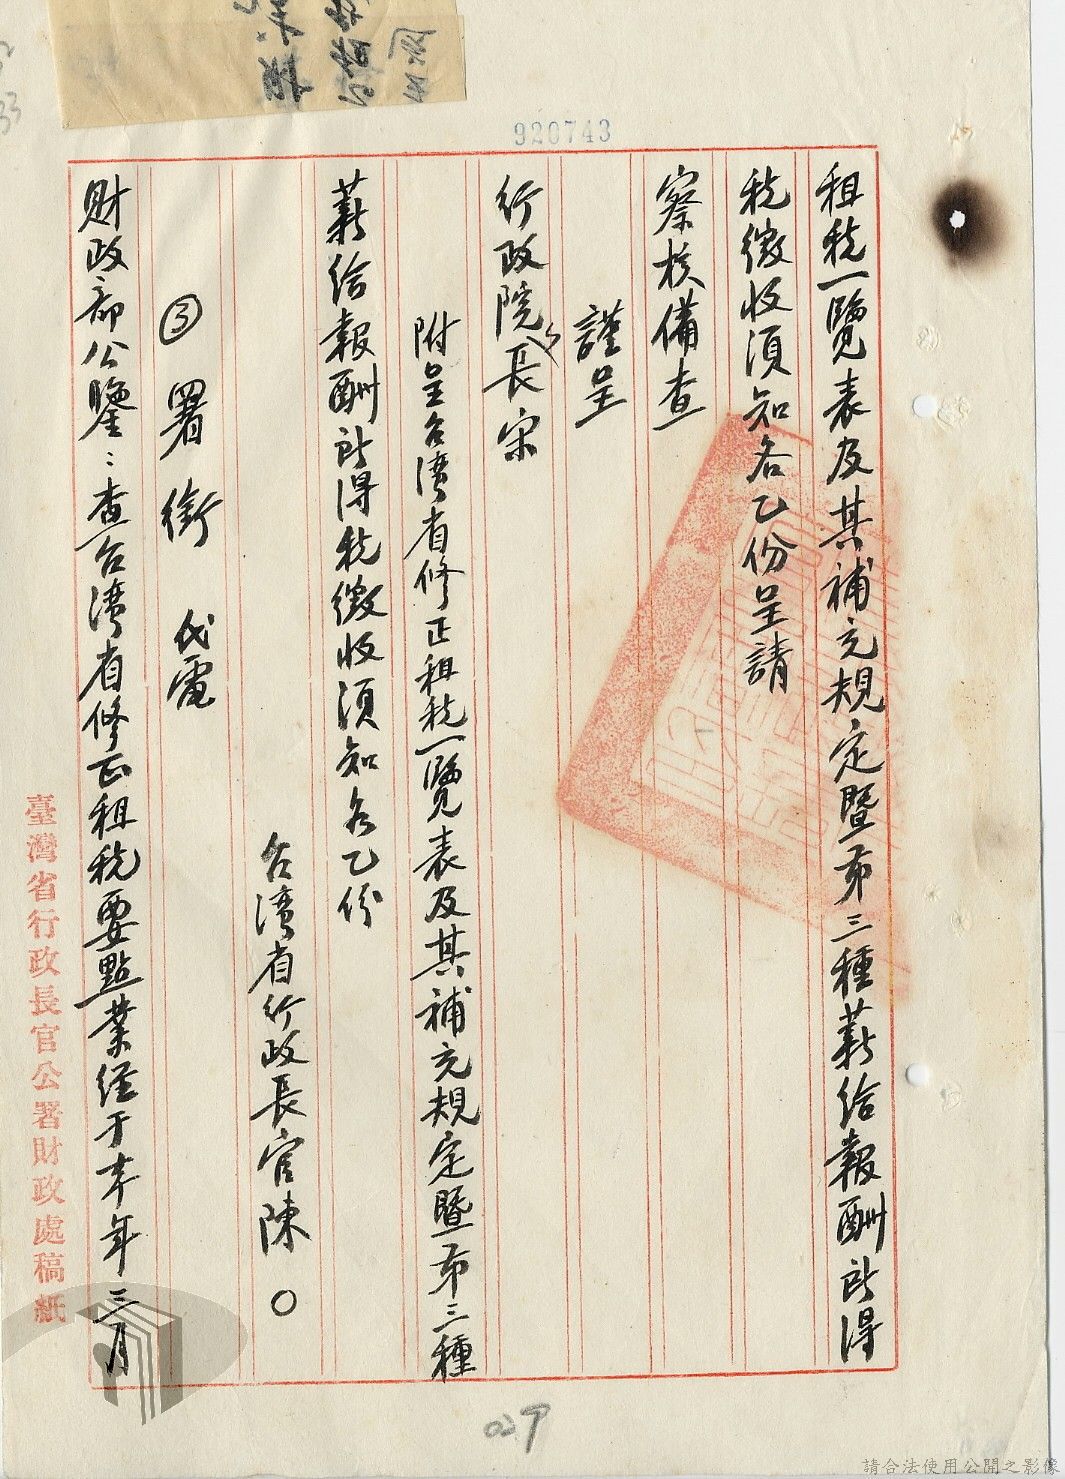 920743
租稅一覽表及其補充規定暨苐三種薪給報酬所得
稅徵收須知各乙份呈請
察核備查
謹呈
行政院長宋
附呈台湾省修正租稅一覽表及其補充規定暨苐三種
薪給報酬所得稅徵收須知各乙份
台湾省行政長官陳○
③署銜 代電
財政部公鑒：查台湾省修正租稅要點業經于本年三月
臺灣省行政長官公署財政處稿紙
029
請合法使用公開之影像